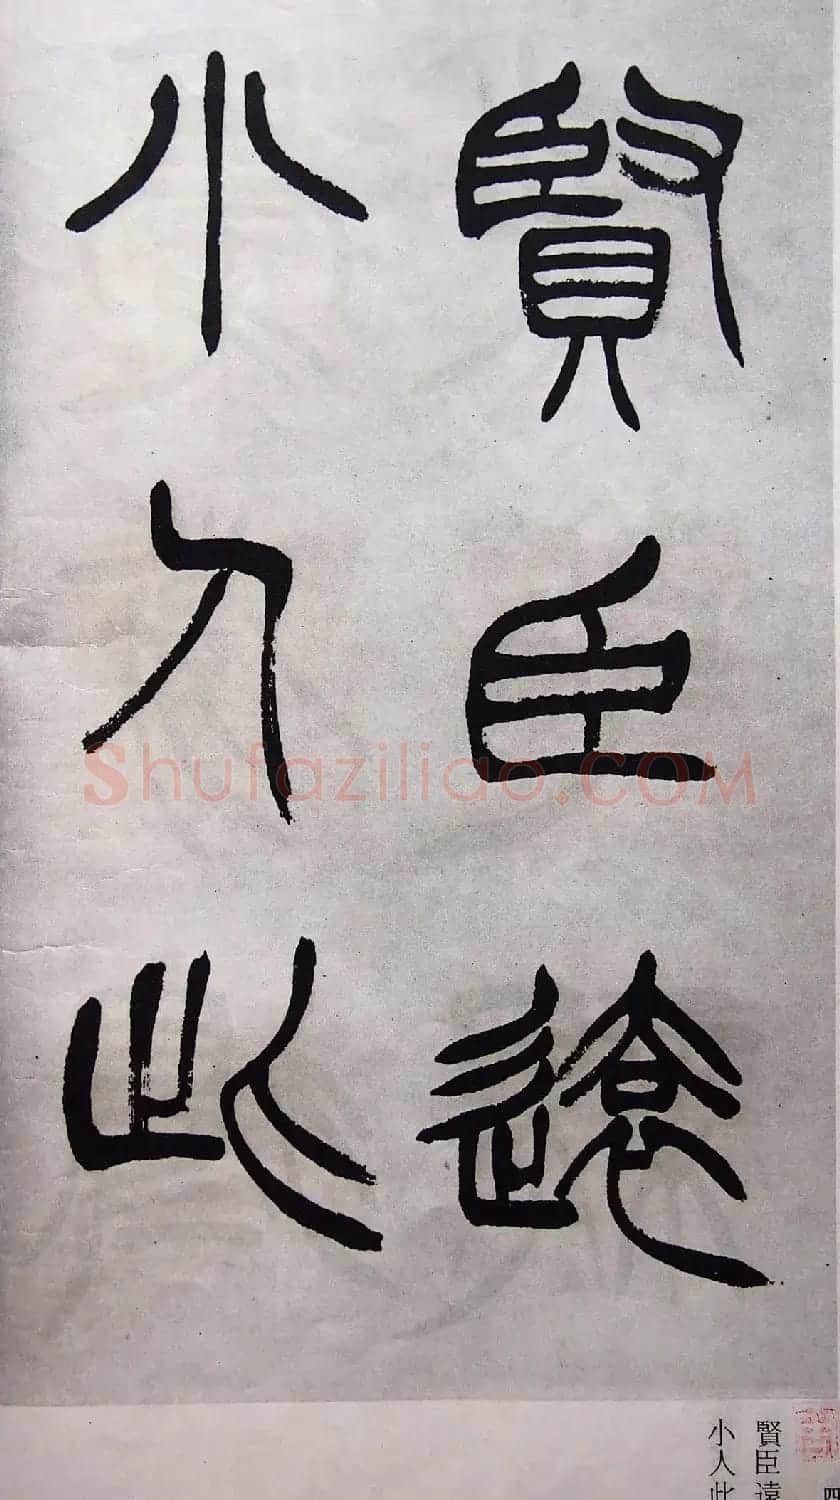 賢臣遠
小人此
Shufaziliao.COM
賢臣遠
小人此
四